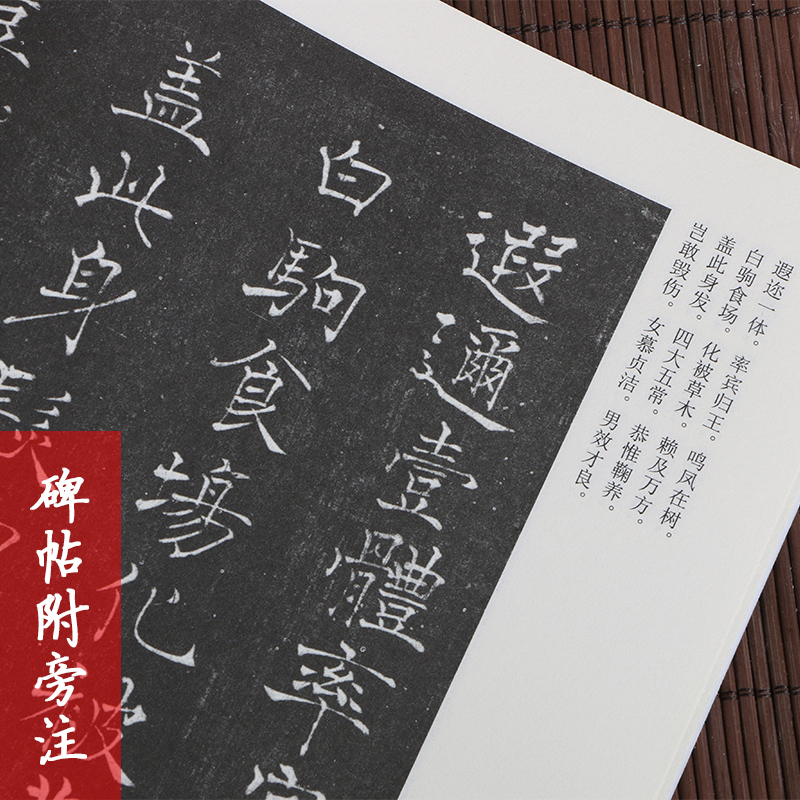 遐迩一体。率宾归王。鸣凤在树。
白驹食场。化被草木。赖及万方。
盖此身发。四大五常。恭惟鞠养。
岂敢毁伤。女慕贞洁。男效才良。
遐邇壹體率
白駒食場化被
盖此身髮
碑帖附旁注